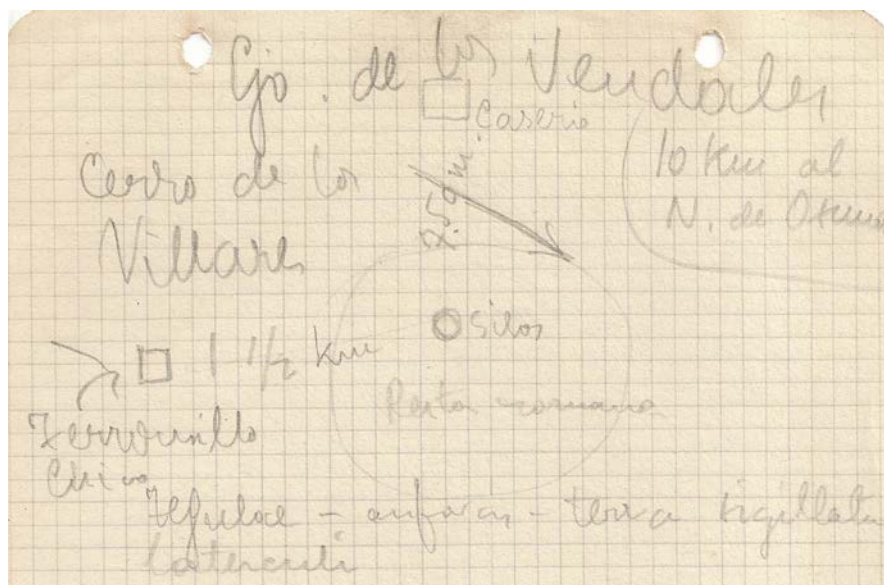 Cjo. de los Vendales
Caserio
10 Km al
N. de Osuna
Cerro de los
Villares
250 m.
Silos
1 1/2 Km
Restos romanos
Chico
Tegulae - anforas - terra sigillata
laterculi